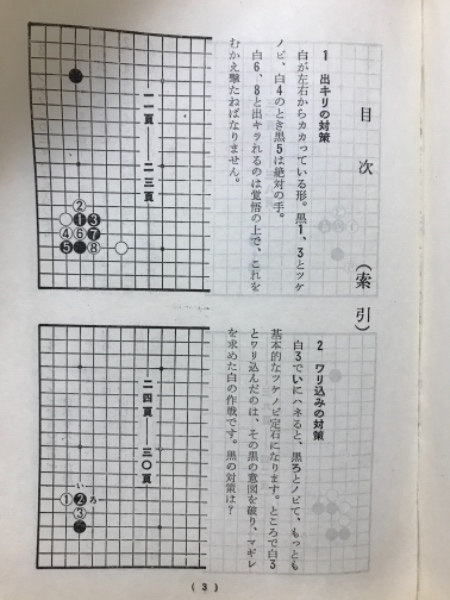 目次
(索引)
1 出キリの対策
白が左右からカカっている形。黒1、3とツケ
ノビ、白4のとき黒5は絶対の手。
白6、8と出キラれるのは覚悟の上で、これを
むかえ撃たねばなりません。
一一頁 ― 二三頁
②
❶❸
④⑥❼
❺⑧
2 ワリ込みの対策
白3でいにハネると、黒ろとノビて、もっとも
基本的なツケノビ定石になります。ところで白3
とワリ込んだのは、その黒の意図を破り、マギレ
を求めた白の作戦です。黒の対策は?
二四頁 ― 三〇頁
い
①❷ろ
③
(3)